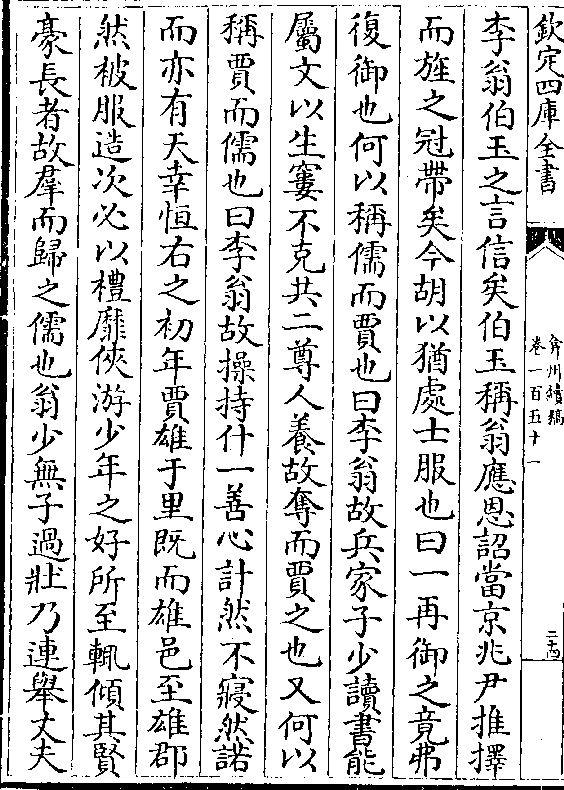 欽定四庫全書
弇州續稿
卷一百五十一
二十四
李翁伯玉之言信矣伯玉稱翁應恩詔當京兆尹推擇
而旌之冠帶矣今胡以猶處士服也曰一再御之竟弗
復御也何以稱儒而賈也曰李翁故兵家子少讀書能
屬文以生窶不克共二尊人養故奪而賈之也又何以
稱賈而儒也曰李翁故操持什一善心計然不寢然諾
而亦有天幸恒右之初年賈雄于里既而雄邑至雄郡
然被服造次必以禮靡俠游少年之好所至輒傾其賢
豪長者故羣而歸之儒也翁少無子過壯乃連舉丈夫